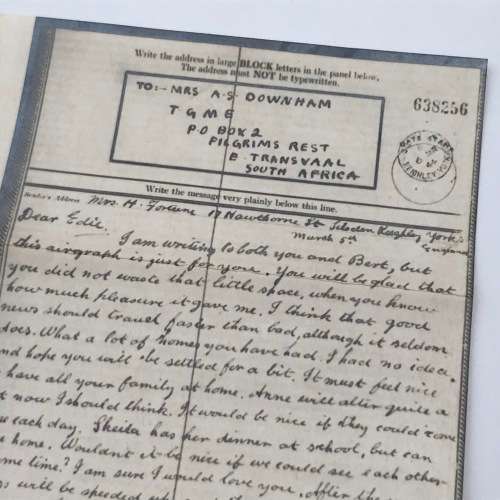 Write the address in large BLOCK letters in the panel below.
The address must NOT be typewritten.
TO:- MRS A. S. DOWNHAM
T G M E
P.O BOX 2
PILGRIMS REST
E. TRANSVAAL
SOUTH AFRICA
638256
Write the message very plainly below this line.
Sender's Address Mrs. H. Fortune 17 Hawthorne St Silsden Keighley Yorks
March 5th England
Dear Edie,
I am writing to both you and Bert, but
this airgraph is just for you. You will be glad that
you did not waste that little space, when you know
how much pleasure it gave me. I think that good
news should travel faster than bad, although it seldom
does. What a lot of homes you have had. I had no idea.
and hope you will be settled for a bit. It must feel nice
have all your family at home. Anne will alter quite a
t now I should think. It would be nice if they could come
each day. Sheila has her dinner at school, but can
home. Wouldn't it be nice if we could see each other
some time? I am sure I would love you. After the
will be speeded up